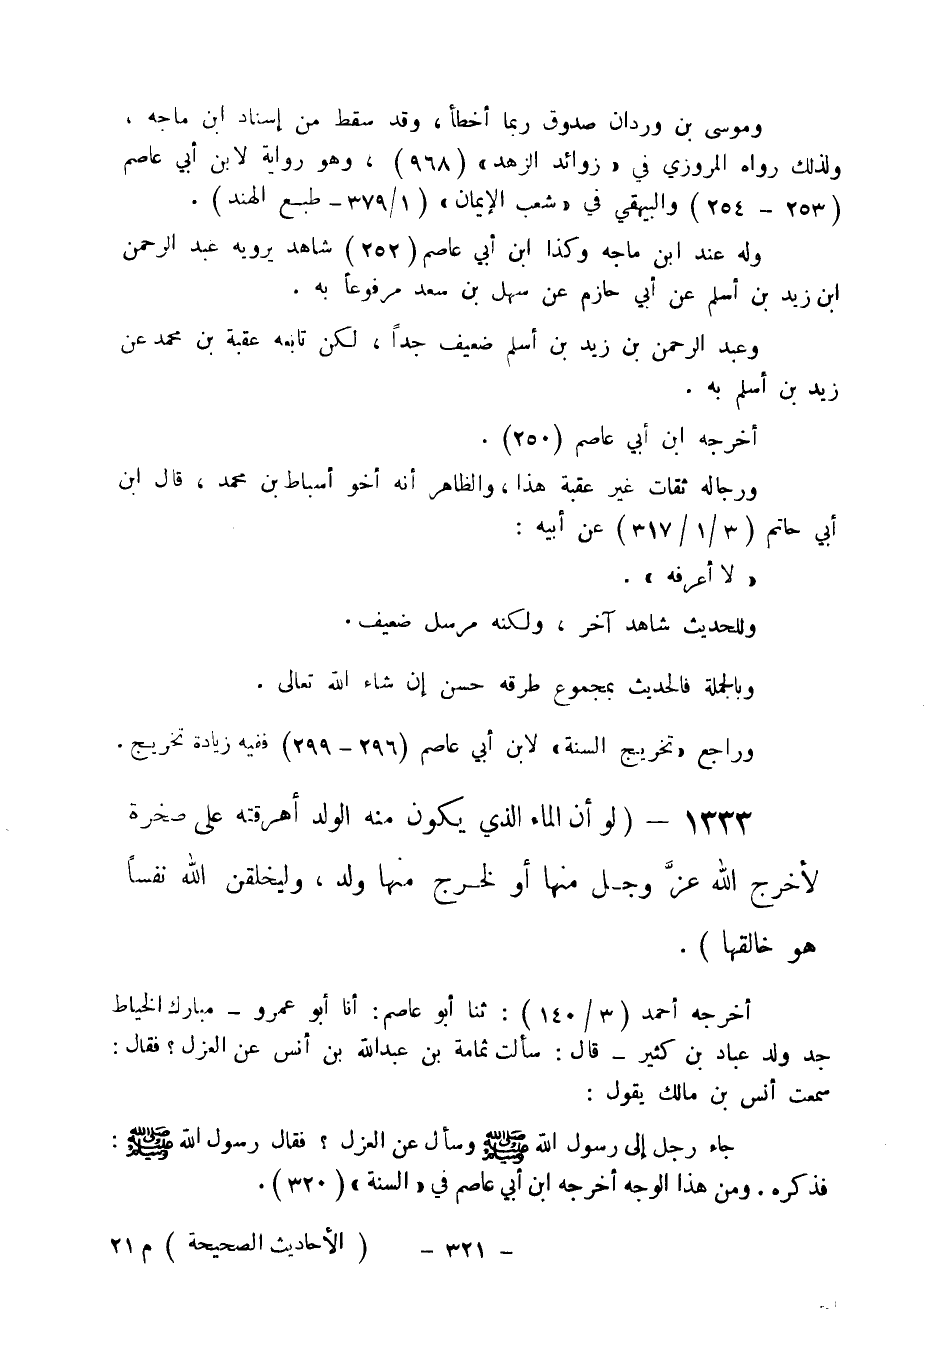 وموسى بن وردان صدوق ربما أخطأ ، وقد سقط من إسناد ابن ماجه ،
ولذلك رواه المروزي في « زوائد الزهد » ( ٩٦٨ ) ، وهو رواية لابن أبي عاصم
( ٢٥٣ – ٢٥٤ ) والبيهقي في « شعب الإيمان » ( ١/ ٣٧٩ – طبع الهند ) .
وله عند ابن ماجه وكذا ابن أبي عاصم ( ٢٥٢ ) شاهد يرويه عبد الرحمن
ابن زيد بن أسلم عن أبي حازم عن سهل بن سعد مرفوعاً به .
وعبد الرحمن بن زيد بن أسلم ضعيف جداً ، لكن تابعه عقبة بن محمد عن
زيد بن أسلم به .
أخرجه ابن أبي عاصم ( ٢٥٠ ) .
ورجاله ثقات غير عقبة هذا ، والظاهر أنه أخو أسباط بن محمد ، قال ابن
أبي حاتم ( ٣ / ١ / ٣١٧ ) عن أبيه :
« لا أعرفه » .
وللحديث شاهد آخر ، ولكنه مرسل ضعيف .
وبالجملة فالحديث بمجموع طرقه حسن إن شاء الله تعالى .
وراجع « تخريج السنة » لابن أبي عاصم ( ٢٩٦ – ٢٩٩ ) ففيه زيادة تخريج .
١٣٣٣ – ( لو أن الماء الذي يكون منه الولد أهرقته على صخرة
لأخرج الله عزَّ وجل منها أو لخرج منها ولد ، وليخلقن الله نفساً
هو خالقها ) .
أخرجه أحمد ( ٣ / ١٤٠ ) : ثنا أبو عاصم : أنا أبو عمرو – مبارك الخياط
جد ولد عباد بن كثير – قال : سألت ثمامة بن عبدالله بن أنس عن العزل ؟ فقال :
سمعت أنس بن مالك يقول :
جاء رجل إلى رسول الله ﷺ وسأل عن العزل ؟ فقال رسول الله ﷺ :
فذكره . ومن هذا الوجه أخرجه ابن أبي عاصم في « السنة » ( ٣٢٠ ) .
– ٣٢١ – ( الأحاديث الصحيحة ) م ٢١